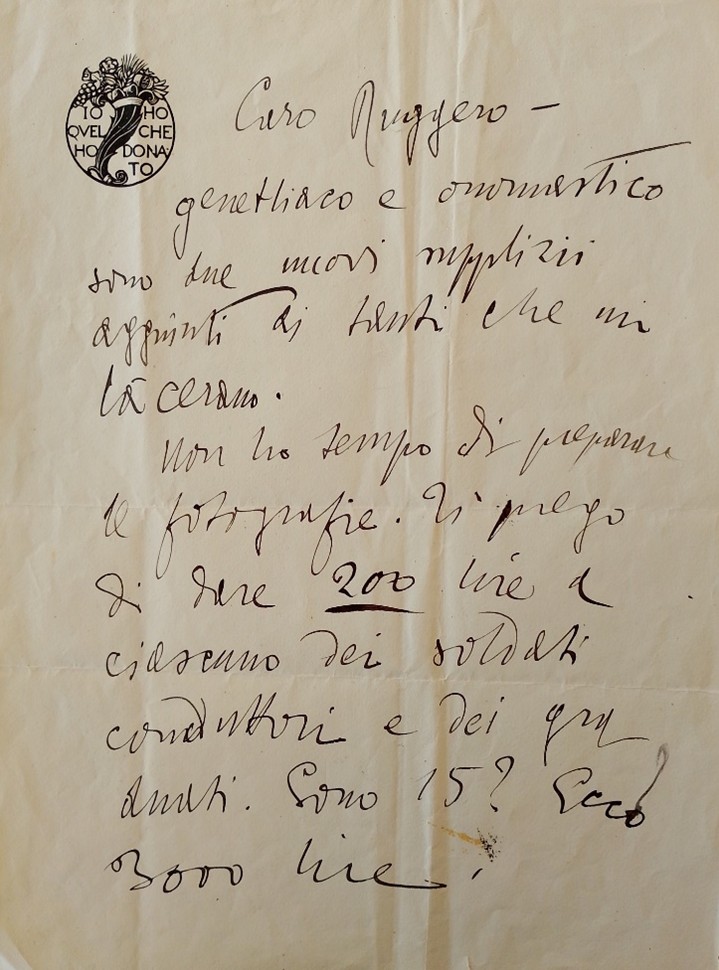 IO HO
QVEL CHE
HO DONA
TO
Caro Ruggero —
genetliaco e onomastico
sono due nuovi supplizii
aggiunti ai tanti che mi
lacerano.
Non ho tempo di preparare
le fotografie. Ti prego
di dare 200 lire a
ciascuno dei soldati
conduttori e dei gra
duati. Sono 15? Ecco
3000 lire.